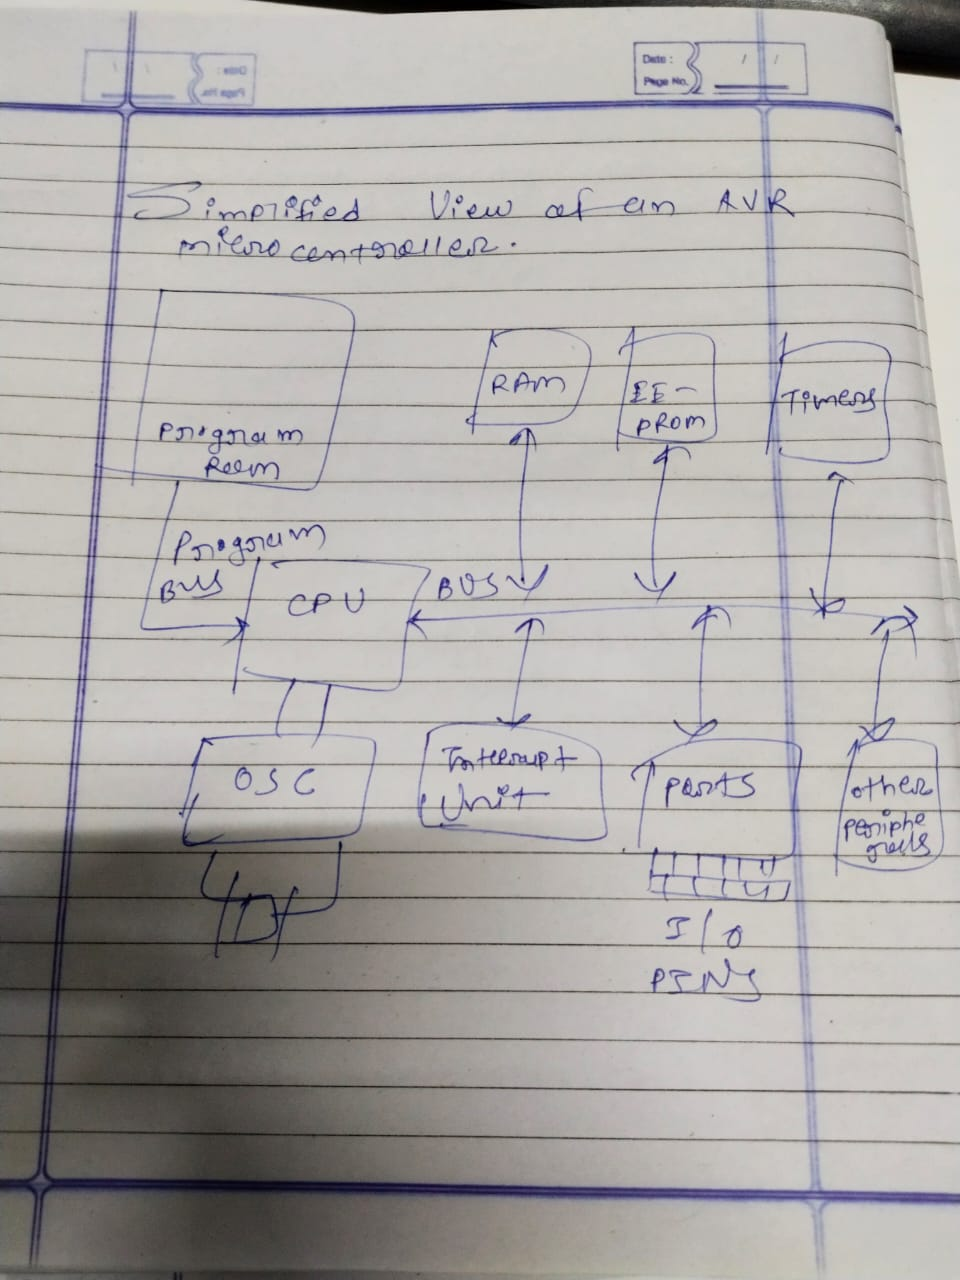 Date :
Page No.
Simplified View of an AVR
microcontroller.
Program
Room
RAM
EE-
PROM
Timers
Program
BUS
CPU
BUS
OSC
Interrupt
Unit
Ports
other
periphe
rals
I/O
PINS